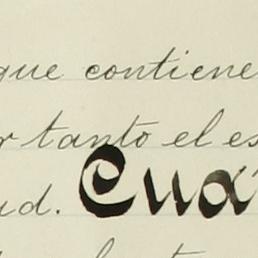 que contiene
r tanto el es
ud. Cua